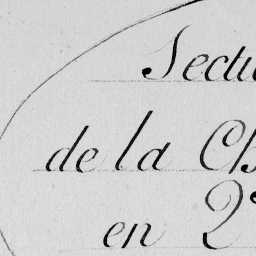 Secti
de la Ch
en 2